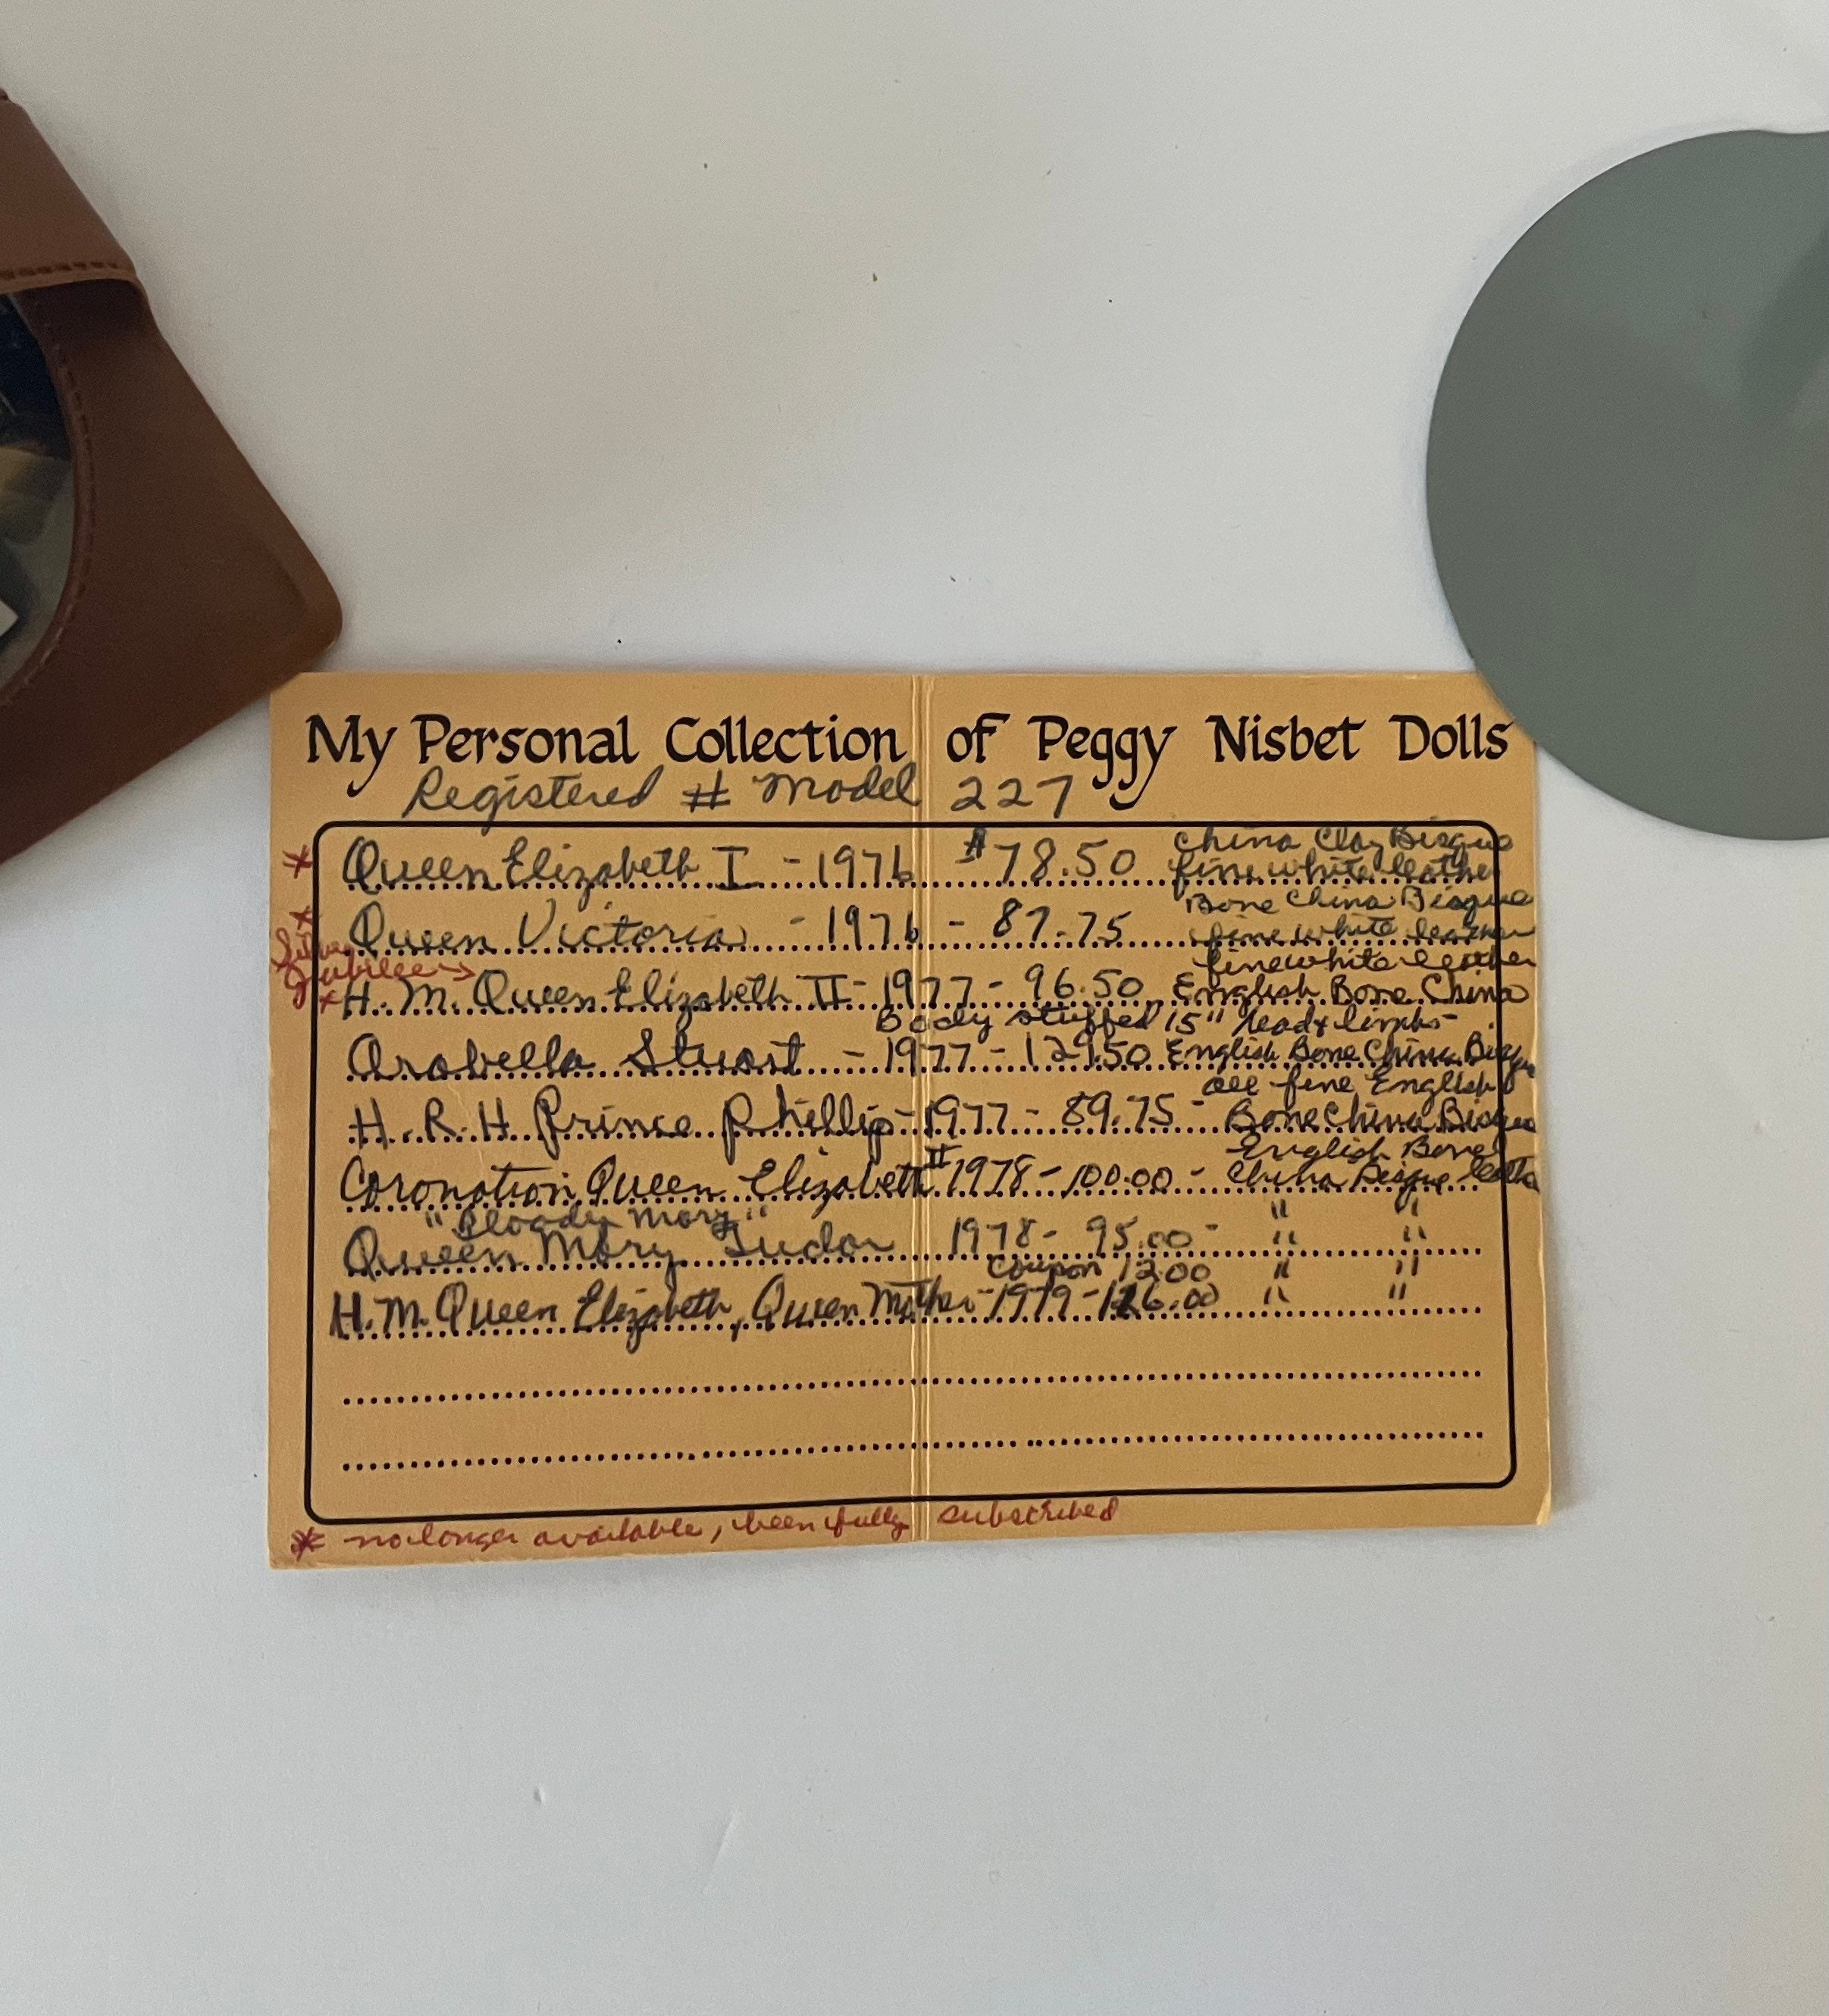 My Personal Collection of Peggy Nisbet Dolls
Registered # Model 227
China Clay Bisque
* Queen Elizabeth I - 1976 $78.50 fine white leather
Bone China Bisque
* Queen Victoria - 1976 - 87.75 fine white leather
Silver
Jubilee → fine white leather
* H. M. Queen Elizabeth II - 1977 - 96.50 English Bone China
Body stuffed 15" head & limbs -
Arabella Stuart - 1977 - 129.50 English Bone China Bisque
all fine English
H. R. H Prince Phillip - 1977 - 89.75 - Bone China Bisque
English Bone
Coronation Queen Elizabeth II 1978 - 100.00 - China Bisque
"Bloody Mary" " "
Queen Mary Tudor 1978 - 95.00 - " "
Coupon 12.00 " "
H. M. Queen Elizabeth, Queen Mother - 1979 - 126.00 " "
* no longer available, been fully subscribed